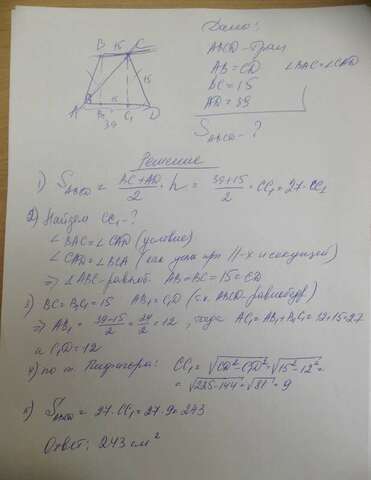 B 15 C
15
A B₁ C₁ D
39
Дано:
ABCD - трап
AB = CD ∠BAC = ∠CAD
BC = 15
AD = 39
S_ABCD - ?
Решение
1) S_ABCD = (BC + AD)/2 · h = (39+15)/2 · CC₁ = 27 · CC₁
2) Найдем CC₁ - ?
∠BAC = ∠CAD (условие)
∠CAD = ∠BCA (как углы при ||-х и секущей)
⇒ ∆ABC - равноб. AB = BC = 15 = CD
3) BC = B₁C₁ = 15 AB₁ = C₁D (т.к. ABCD - равнобедр)
⇒ AB₁ = (39-15)/2 = 24/2 = 12, тогда AC₁ = AB₁ + B₁C₁ = 12 + 15 = 27
и C₁D = 12
4) по т. Пифагора: CC₁ = √CD² - C₁D² = √15² - 12² =
= √225 - 144 = √81 = 9
5) S_ABCD = 27 · CC₁ = 27 · 9 = 243
Ответ: 243 см²